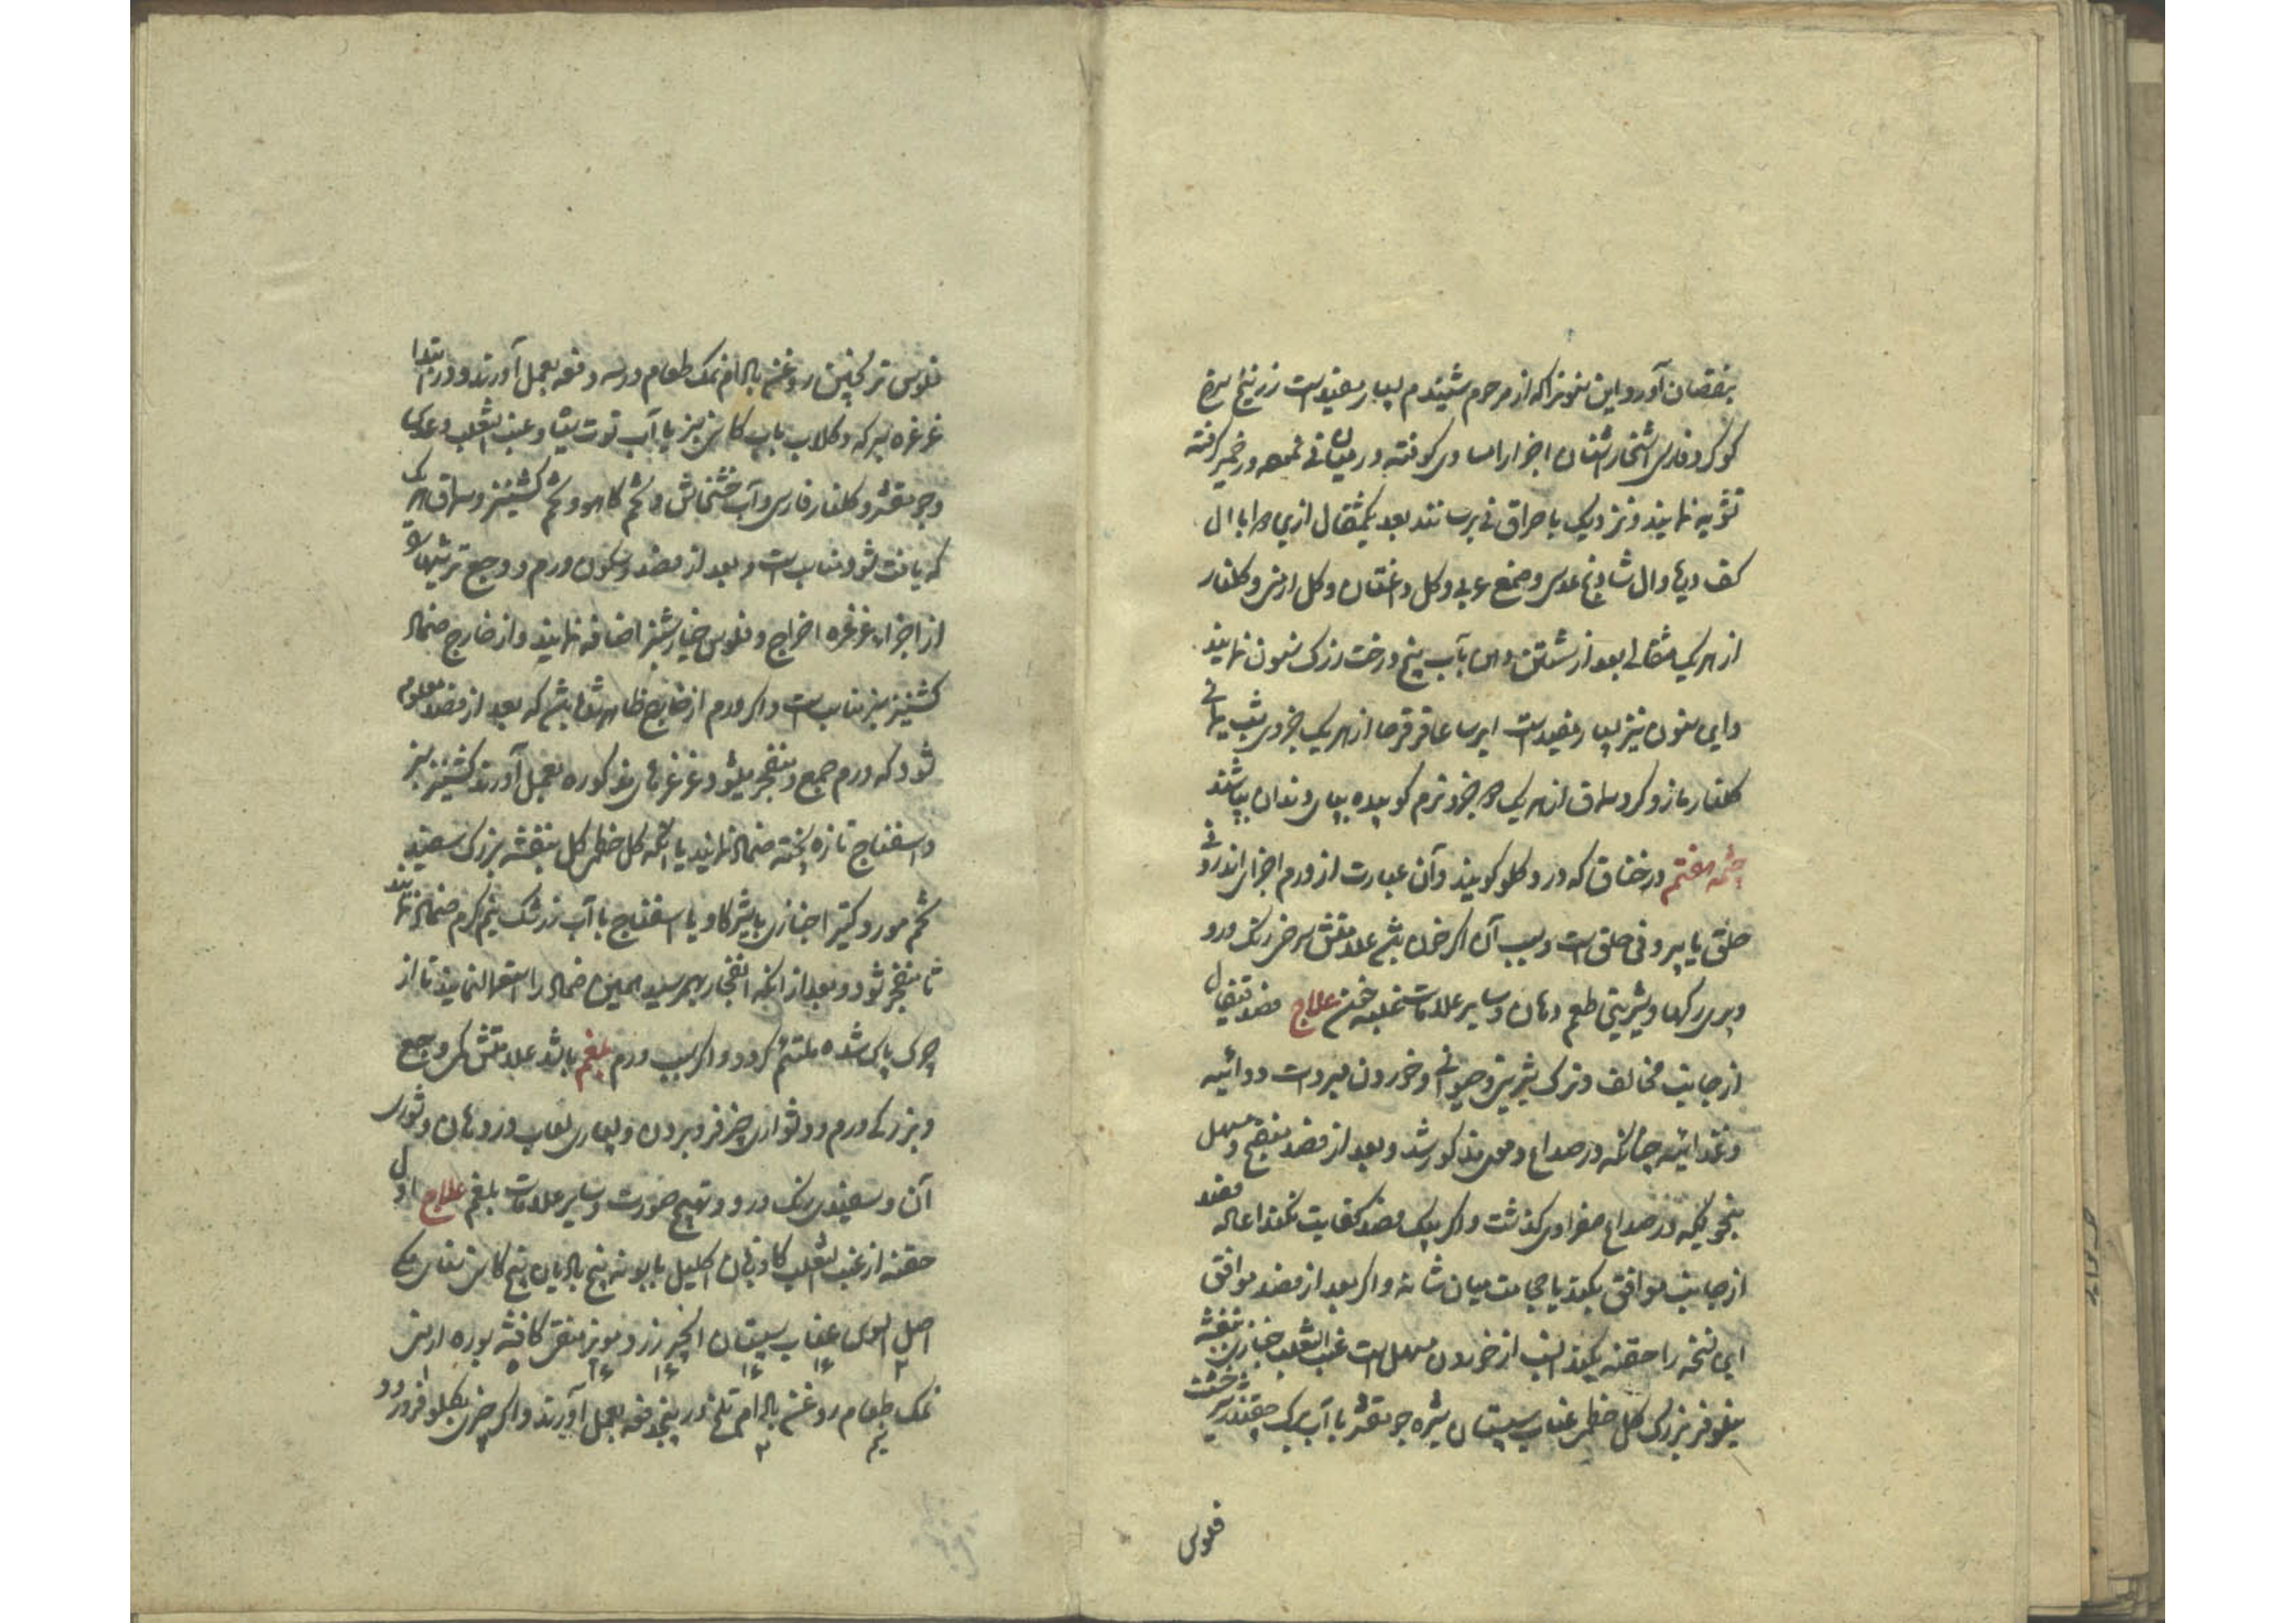 بنقصان آورد و این سفوف را که از مرحوم شنیدم بسیار مفیدست زرنیخ سرخ
کوکرد فارسی اشخار اشنان اجزا را مساوی کوفته در میان نی نهند و در خمیر کرفته
تشویه نمایند و نزدیک باحراق نی برسانند بعد یکمثقال ازین را با ال
کف دریا و ال شادنج عدسی و صمغ عربی و کل داغستان و کل ارمنی و کلنار
از هر یک مثقالی بعد از شستن دهان بآب بیخ درخت زرک سنون نمایند
و این سنون نیز بسیار مفیدست ایرسا عاقرقرحا از هر یک جزوی شب یمانی
کلنار مازو کرد سماق از هر یک جزو نرم کوبیده بپای دندان بپاشند
چشمه هفتم در خناق که درد کلو کویند و آن عبارت از ورم اجزای اندرونی
حلق یا بیرونی حلق است و سبب آن اکر خون باشد علامتش سرخی رنک و رو
و پری رکها و شیرینی طعم دهان و سایر علامات غلبه خون علاج فصد قیفال
از جانب مخالف و ترک شیرینی و حیوانی و خوردن مبردات دوائیه
و غذائیه چنانکه در صداع دموی مذکور شد و بعد از فصد منضج و مسهل
بنحویکه در صداع صفراوی کذشت و اکر بیک فصد کفایت نکند اعاده فصد
از جانب موافق بکند یا حجامت میان شانه و اکر بعد از فصد موافق
این نسخه را حقنه بکند انسب از خوردن مسهل است عنب الثعلب خبازی بنفشه
نیلوفر بزرک کل خطمی عناب سپستان شیره جو مقشر با آب برک چقندر شیرخشت
فلوس
فلوس ترنجبین روغن بادام نمک طعام در سه دفعه بعمل آورند و در ابتدا
غرغره بسرکه و کلاب باب کاسنی سبز یا آب توت سیاه و عنب الثعلب و عدس
و جو مقشر و کلنار فارسی و آب خشخاش و تخم کاهو و تخم کشنیز و سماق هر یک
که یافت شود مناسبست و بعد از فصد و سکون ورم و وجع ترشیها
از اجزاء غرغره اخراج و فلوس خیارشنبر اضافه نمایند و از خارج ضماد
کشنیز سبز مناسبست و اکر ورم از خارج ظاهر شده باشد که بعد از فصد معلوم
شود که ورم جمع و منفجر میشود غرغره‌های مذکوره بعمل آورند کشنیز سبز
و اسفناج تازه پخته ضماد نمایند یا آنکه کل خطمی کل بنفشه بزرک سفید
تخم مرو کتیرا خبازی با شیر کاو یا اسفناج با آب زرشک نیم کرم ضماد نمایند
تا منفجر شود و بعد از آنکه انفجار بهم رسید همین ضماد را استعمال نمایند تا از
چرک پاک شده ملتئم کردد و اکر سبب ورم بلغم باشد علامتش کمی وجع
و بزرکی ورم و دشواری چیز فرو بردن و بسیاری لعاب در دهان و شوری
آن و سفیدی رنک و رو و تهبج صورت و سایر علامات بلغم علاج اول
حقنه از عنب الثعلب کاوزبان اکلیل بابونه بیخ بادیان بیخ کاسنی سنای مکی
اصل السوس عناب سپستان انجیر زرد مویز منقی کافشه بوره ارمنی
نمک طعام روغن بادام تلخ در پنج دفعه بعمل آورند و اکر چیزی بکلو فرو رود